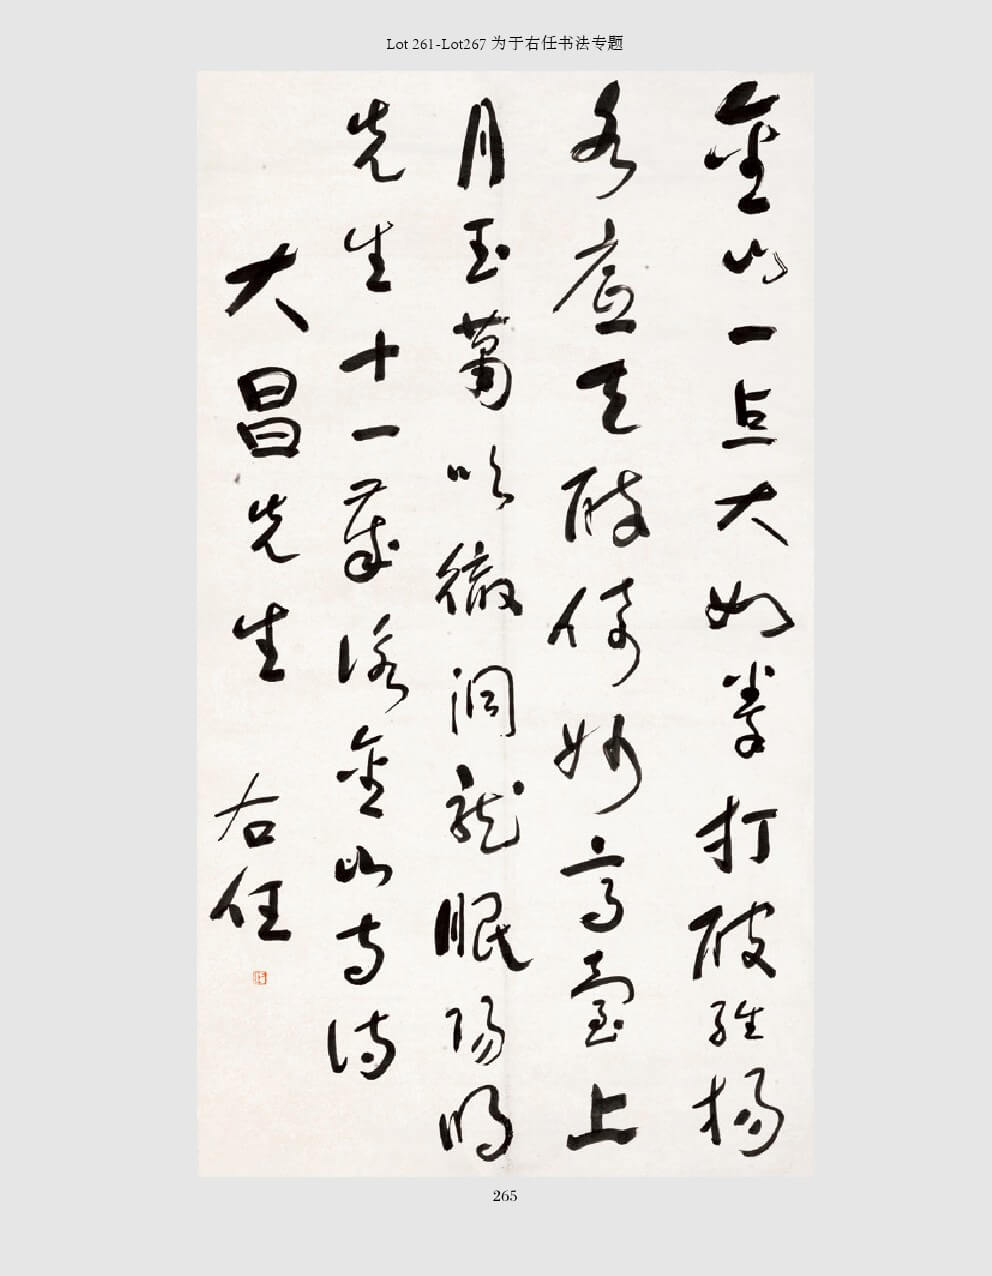 Lot 261-Lot267 为于右任书法专题
金山一点大如拳打破維揚
水底天醉倚妙高臺上
月玉簫吹徹洞龍眠陽明
先生十一歲詠金山寺詩
大昌先生 右任
265